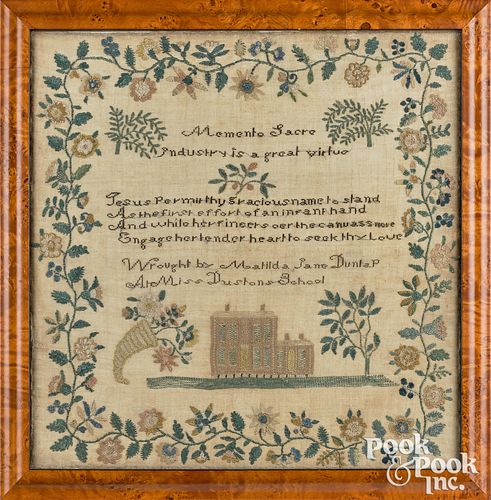 Memento Sacre
Industry is a great virtue
Jesus Permit thy gracious name to stand
As the first effort of an infant hand
And while her fingers oer the canvass move
Engage her tender heart to seek thy Love
Wrought by Matilda Jane Dunlap
At Miss Dustons School
Pook
& Pook
Inc.